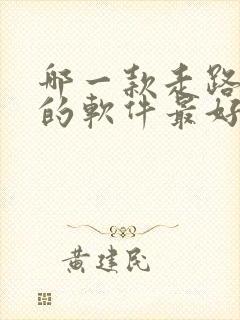 哪一款走路
的軟件最好
黃建民